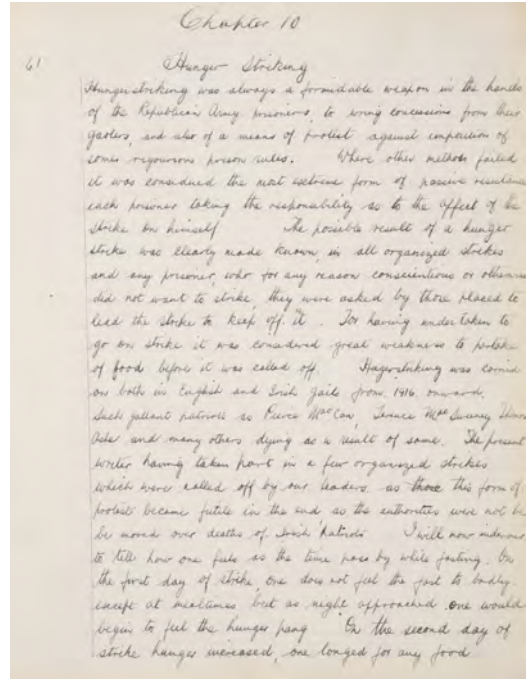 Chapter 10
61
Hunger Striking
Hungerstriking was always a formidable weapon in the hands
of the Republican Army prisoners, to wring concessions from their
gaolers, and also of a means of protest against imposition of
some rigourous prison rules. Where other methods failed
it was considered the most extreme form of passive resistance
each prisoner taking the responsibility as to the affect of the
strike on himself The possible result of a hunger
strike was clearly made known, in all organized strikes
and any prisoner, who for any reason conscientious or otherwise
did not want to strike, they were asked by those placed to
lead the strike to keep off it. For having undertaken to
go on strike it was considered great weakness to partake
of food before it was called off. Hugerstriking was carried
on both in English and Irish jails from 1916 onward.
Such gallant patriots as Pierce MacCan, Terence MacSweney
Ashe and many others dying as a result of same. The present
writer having taken part in a few organized strikes
which were called off by our leaders as this form of
protest became futile in the end as the authorities were not be
be moved over deaths of Irish Patriots I will now
to tell how one feels as the time pass by while fasting. On
the first day of strike, one does not feel the fast to badly
except at mealtimes but as night approached one would
begin to feel the hunger pang On the second day of
strike hunger increased, one longed for any food